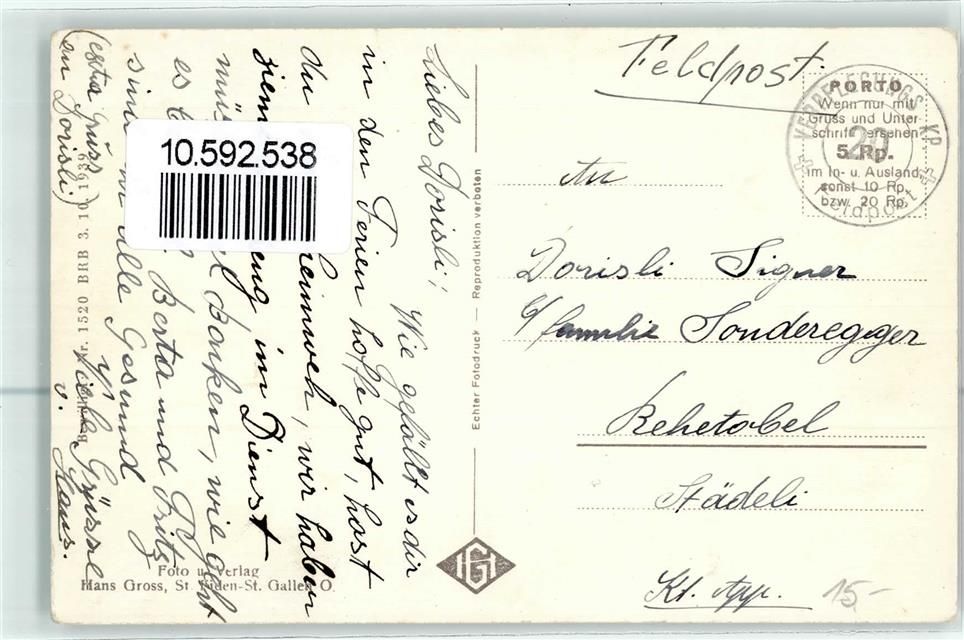 Feldpost.
PORTO
Wenn nur mit
Gruss und Unter-
schrift versehen
5 Rp.
im In- u. Ausland,
sonst 10 Rp.
bzw. 20 Rp.
VERPFLEGUNGS KP.
20
Feldpost
An
Dorisli Signer
c/ familie Sonderegger
Rehetobel
Städeli
Kt. App.
15.-
Liebes Dorisli!
Wie gefällt es dir
in den Ferien hoffe gut, hast
du Heimweh, wir haben
streng im Dienst
Banken, wie geht
es Berta und Fritz
sind alle Gesund
Viele Grüsse
v. Hans.
(extra Gruss
an Dorisli)
10.592.538
1520 BRB 3. 10. 1939
Echter Fotodruck — Reproduktion verboten
Foto u. Verlag
Hans Gross, St. Fiden-St. Gallen O.